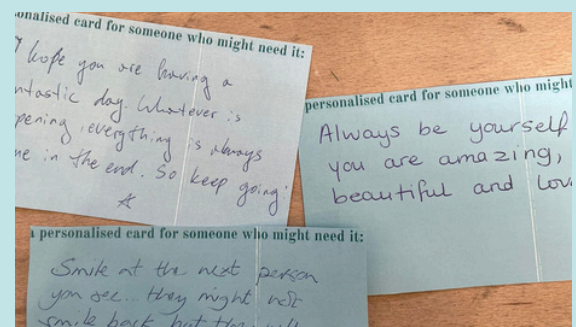 onalised card for someone who might need it:
I hope you are having a
ntastic day. Whatever is
pening, everything is always
ne in the end. So keep going!
personalised card for someone who might
Always be yourself
you are amazing,
beautiful and lov
a personalised card for someone who might need it:
Smile at the next person
you see... they might not
smile back but they will